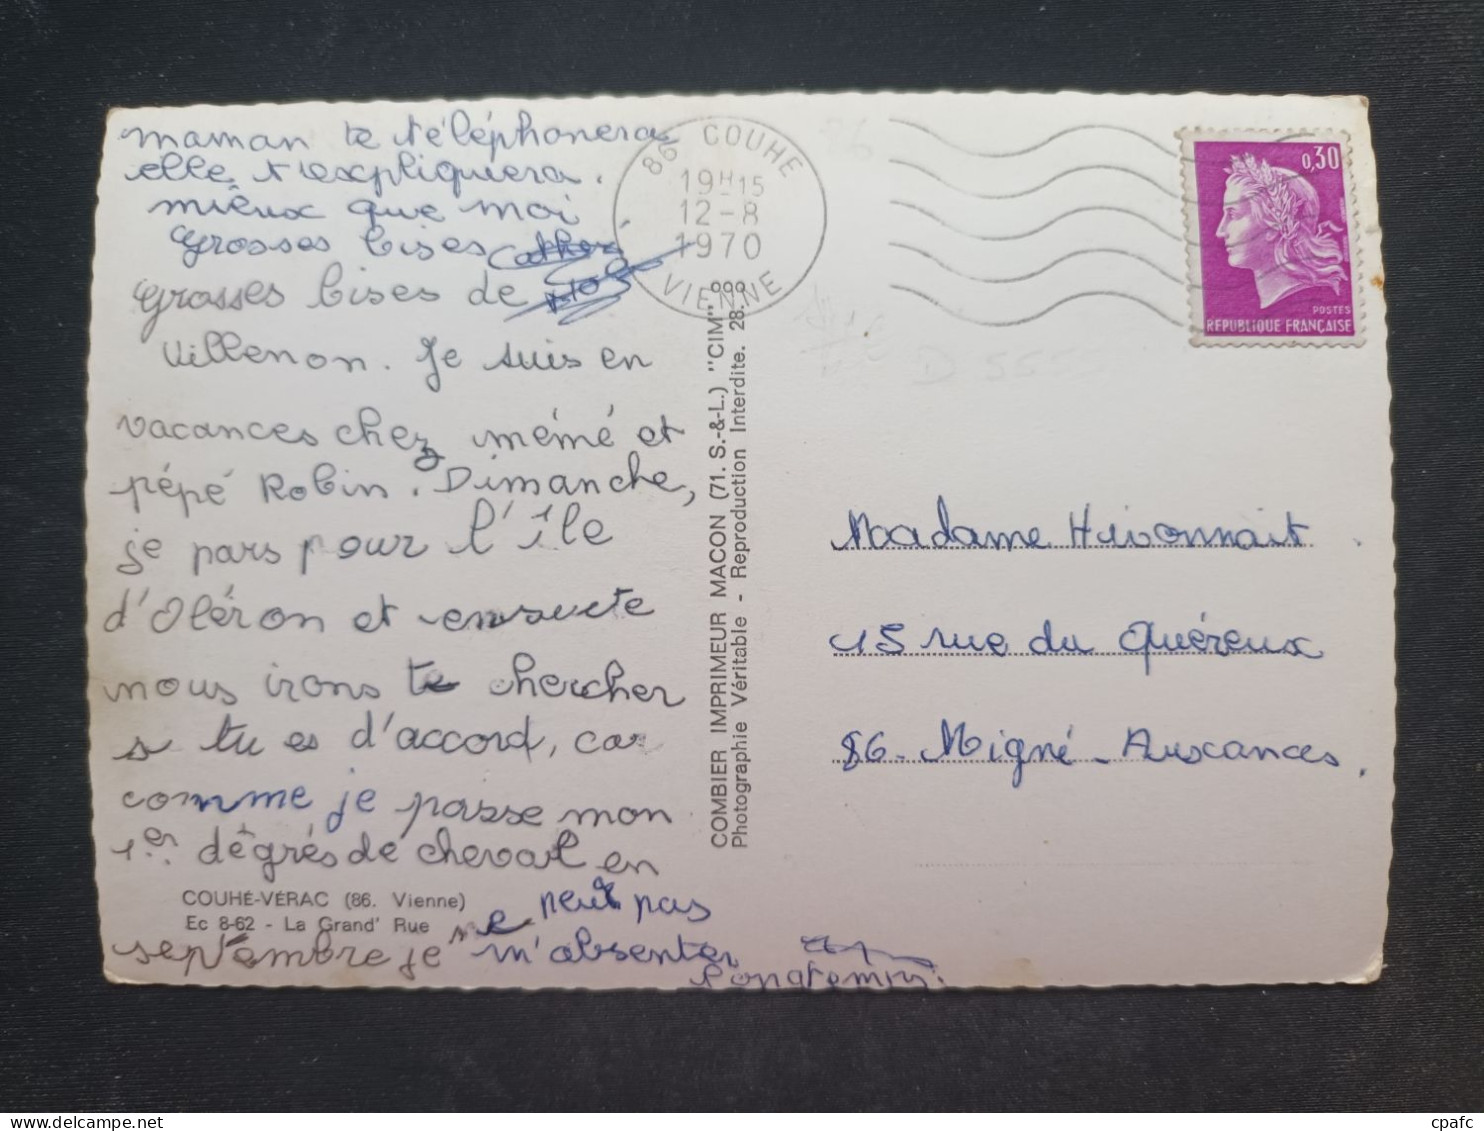 maman te téléphonera
elle t'expliquera
mieux que moi
Grosses bises
Grosses bises de
Villenon. Je suis en
vacances chez mémé et
pépé Robin. Dimanche,
je pars pour l'île
d'Oléron et ensuite
nous irons te chercher
si tu es d'accord, car
comme je passe mon
1er dégrés de cheval en
septembre je ne peut pas
m'absenter
longtemps.
COUHÉ-VÉRAC (86. Vienne)
Ec 8-62 - La Grand' Rue
COMBIER IMPRIMEUR MACON (71. S.-&-L.) "CIM"
Photographie Véritable - Reproduction Interdite. 28.
86 COUHE
19H15
12-8
1970
VIENNE
0,30
POSTES
REPUBLIQUE FRANÇAISE
Madame Hivonnait
15 rue du Quéreux
86 - Migné - Auxances.
cpafc